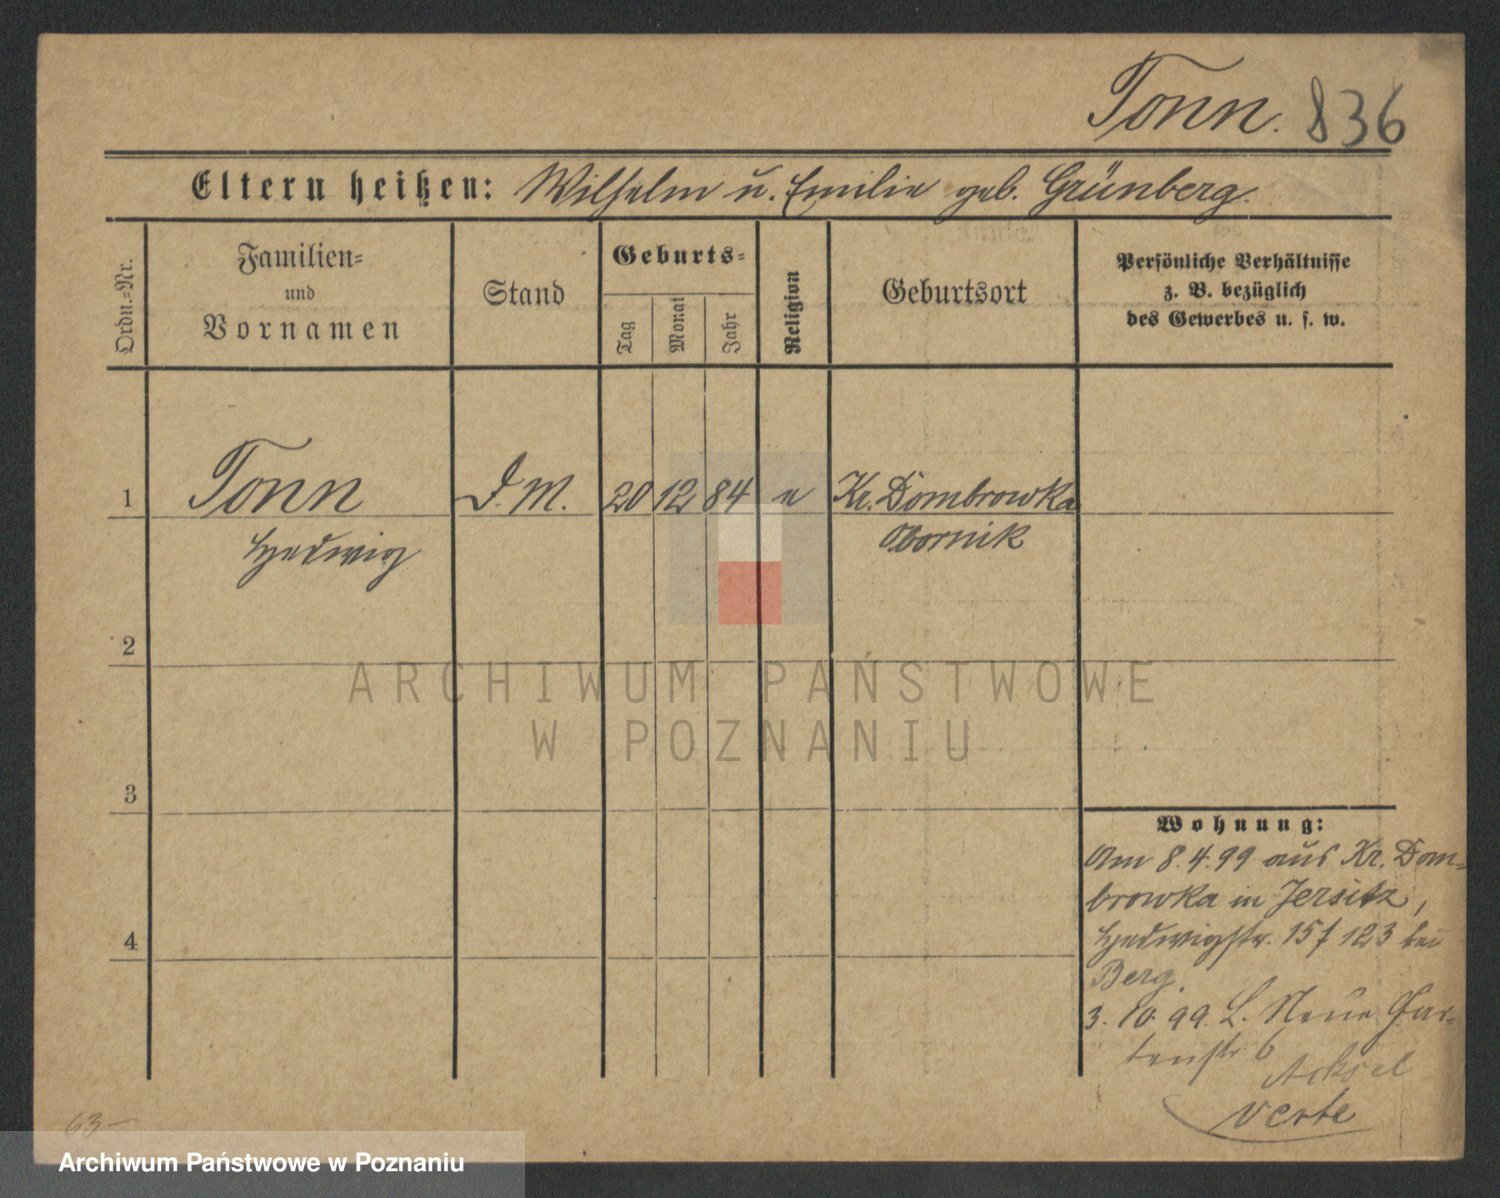 Tonn. 836
Eltern heißen: Wilhelm u. Emilie geb. Grünberg.
Ordn.=Nr.
Familien=
und
Vornamen
Stand
Geburts=
Tag
Monat
Jahr
Religion
Geburtsort
Persönliche Verhältnisse
z. B. bezüglich
des Gewerbes u. s. w.
1 Tonn D. M. 20 12 84 e Kr. Dombrowka
Hedwig Obornik
2
ARCHIWUM PAŃSTWOWE
W POZNANIU
3
Wohnung:
Am 8.4.99 aus Kr. Dom=
browka in Jersitz,
4
Hedwigstr. 15 f 123 bei
Berg.
3. 10. 99. L. Neue Gar=
tenstr 6
verte
63
Archiwum Państwowe w Poznaniu